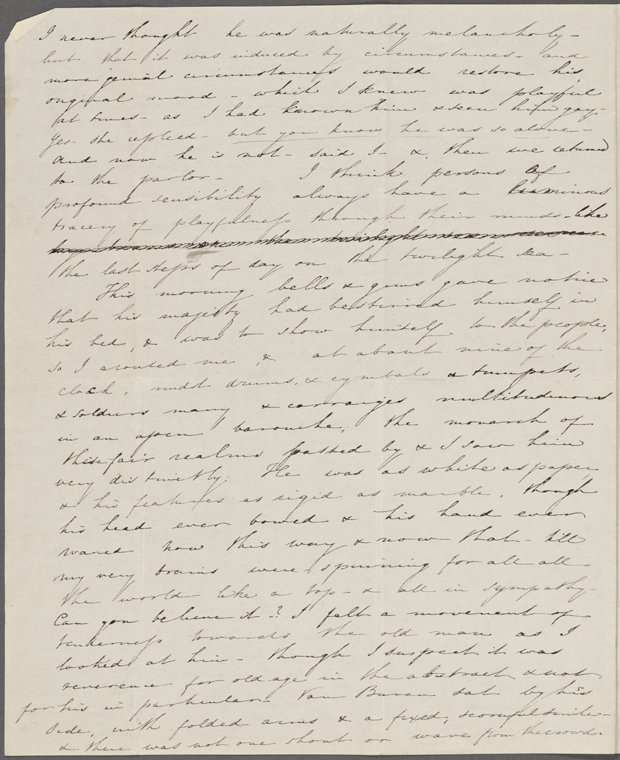 I never thought he was naturally melancholy-
but that it was induced by circumstances- and
more genial circumstances would restore his
original mood- which I knew was playful
at times- as I had known him & seen him gay-
Yes- she replied- but you know he was so alone-
and now he is not- said I- & then we returned
to the parlor- I think persons of
profound sensibility always have a luminous
tracery of playfulness through their minds- like
the last steps of day on the twilight sea-
This morning bells & guns gave notice
that his majesty had bestirred himself in
his bed, & was to show himself to the people,
so I aroused me, & at about nine of the
clock, midst drums, & cymbals & trumpets,
& soldiers many & carraiges multitudinous
in an open barouche, the monarch of
these fair realms passed by & I saw him
very distinctly. He was as white as paper
& his features as rigid as marble, though
his head ever bowed & his hand ever
waved now this way & now that- till
my very brains were spinning for all all
the world like a top- & all in sympathy-
Can you believe it? I felt a movement of
tenderness towards the old man as I
looked at him- though I suspect it was
reverence for old age in the abstract & not
for his in particular Van Buren sat by his
side, with folded arms & a fixed, scornful smile-
& there was not one shout or wave from the crowd.